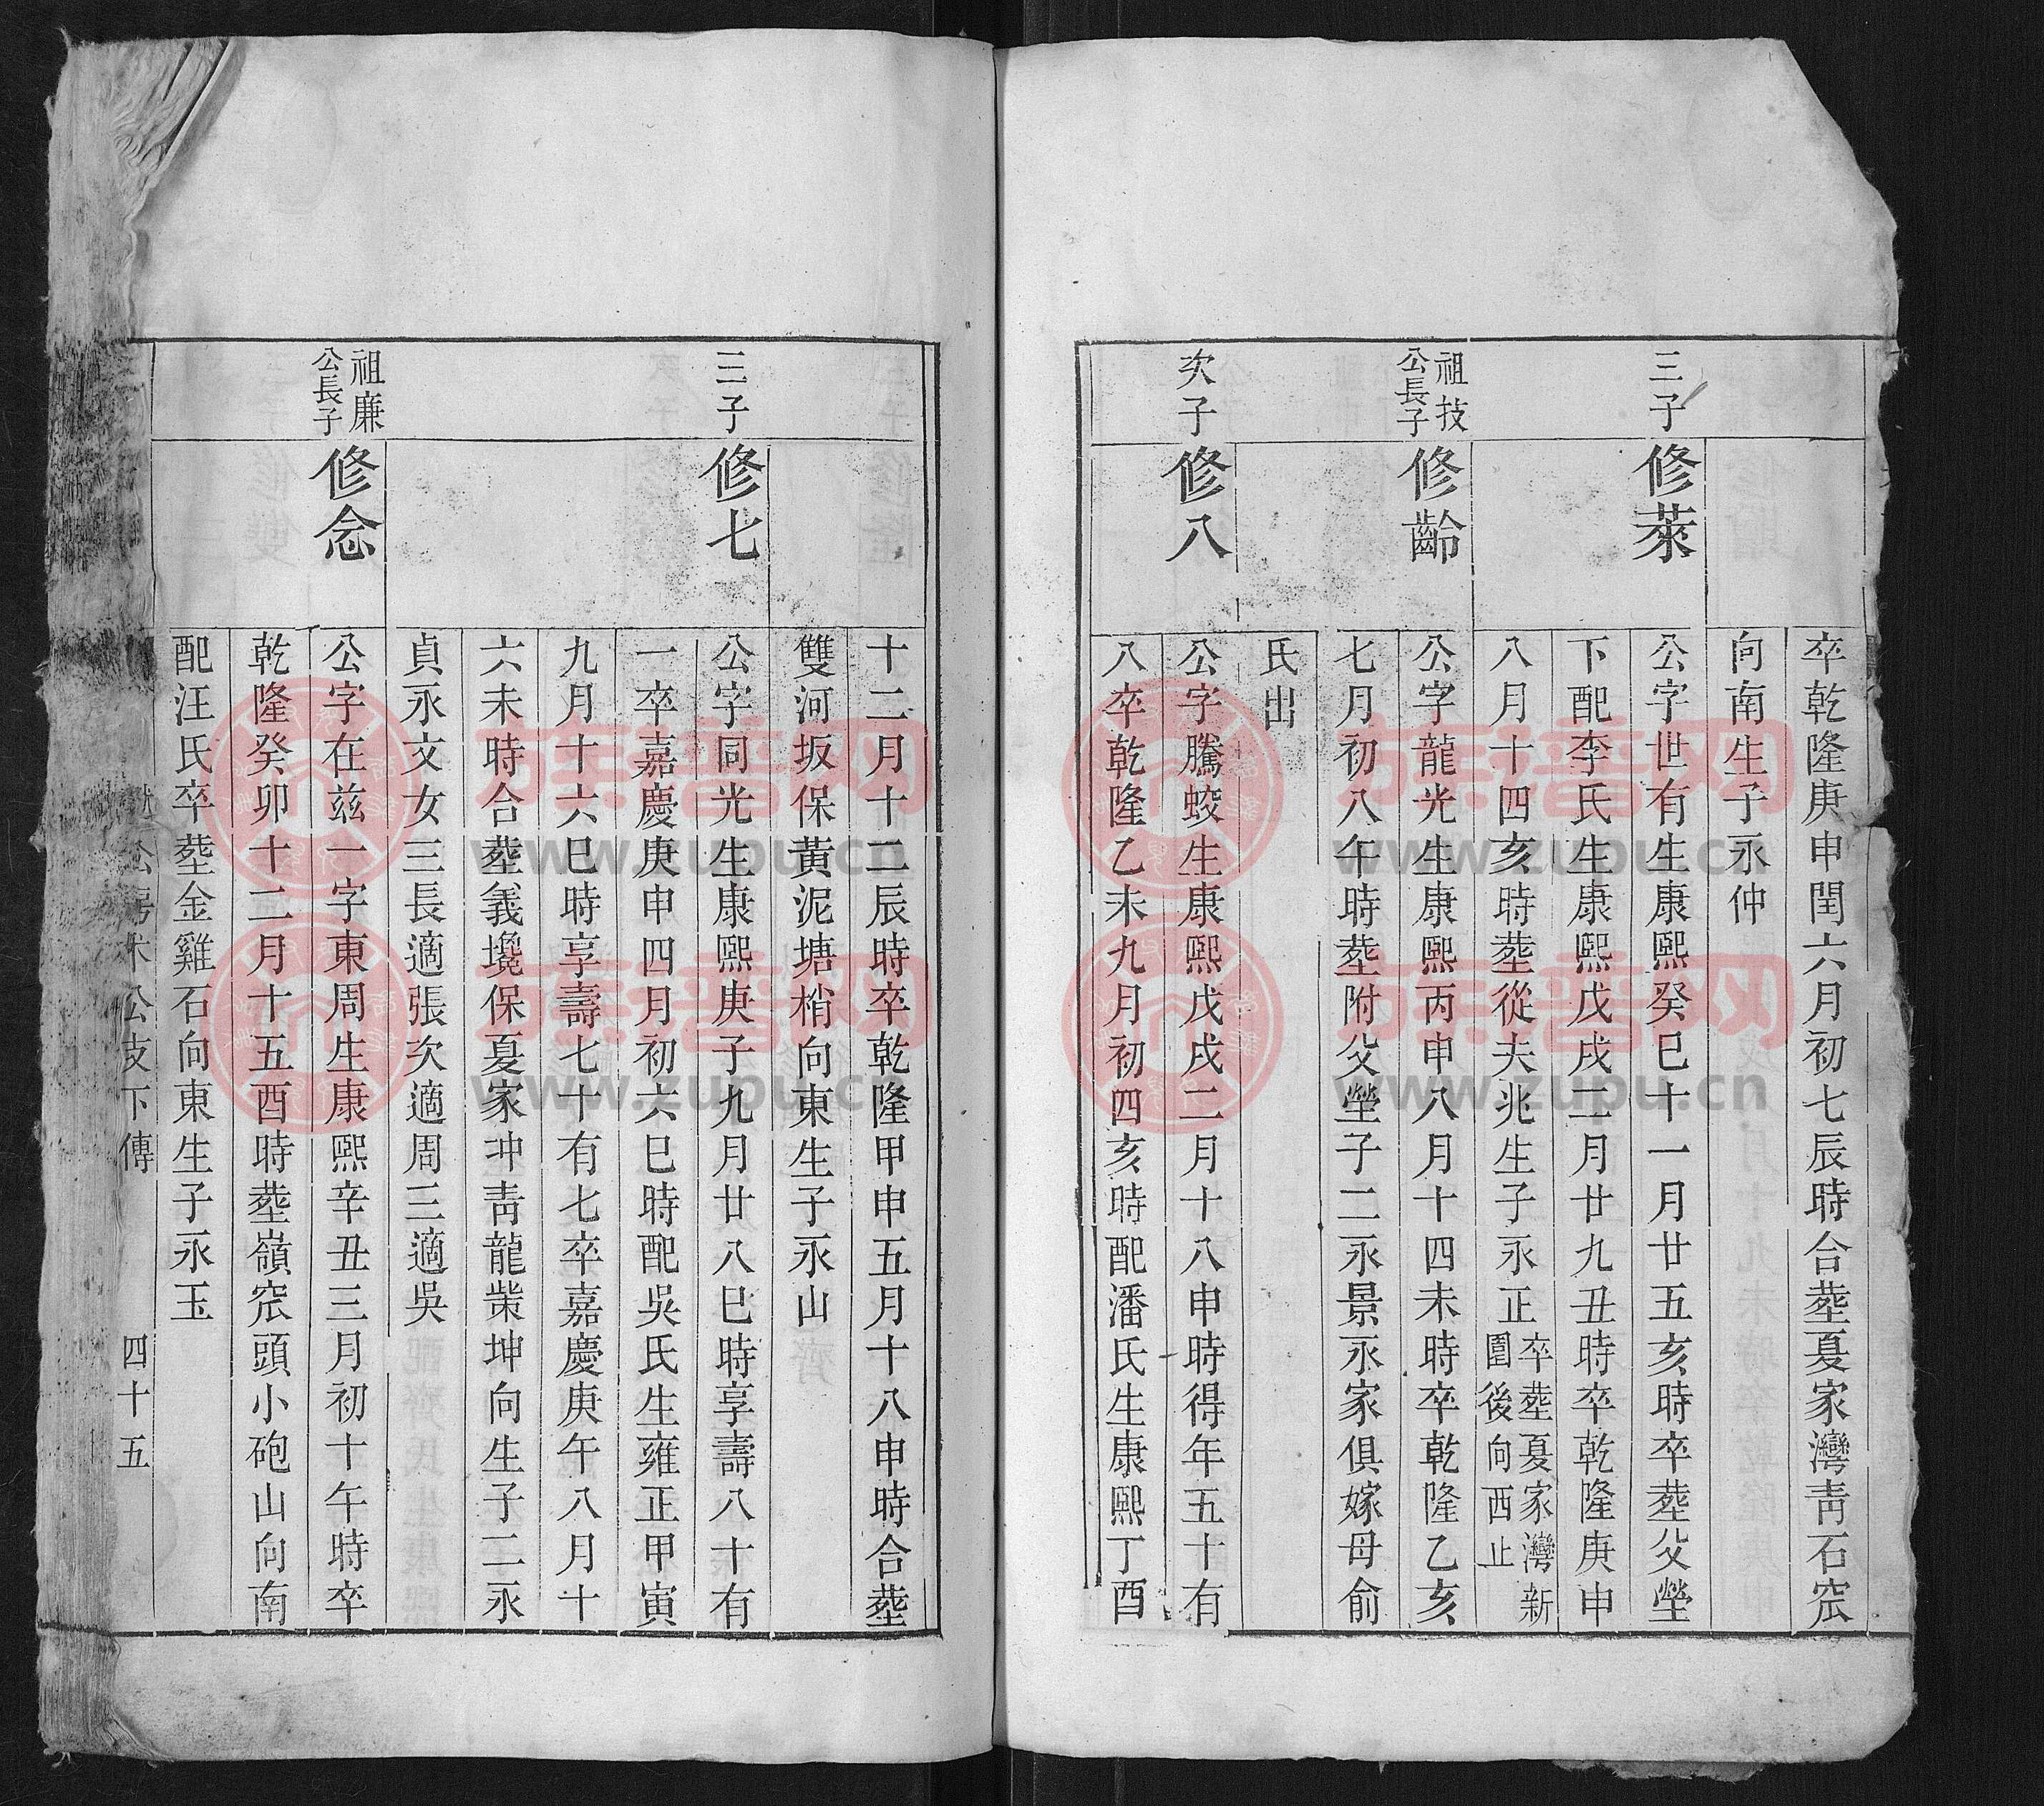 卒乾隆庚申閏六月初七辰時合塟夏家灣靑石窊
向南生子永仲
三子
修萊
公字世有生康熙癸巳十一月廿五亥時卒塟父塋
下配李氏生康熙戊戌二月廿九丑時卒乾隆庚申
八月十四亥時塟從夫兆生子永正卒塟夏家灣新
圍後向西止
祖技
公長子
修齡
公字龍光生康熙丙申八月十四未時卒乾隆乙亥
七月初八午時塟附父塋子二永景永家俱嫁母俞
氏出
次子
修八
公字騰蛟生康熙戊戌二月十八申時得年五十有
八卒乾隆乙未九月初四亥時配潘氏生康熙丁酉
十二月十二辰時卒乾隆甲申五月十八申時合塟
雙河坂保黃泥塘梢向東生子永山
三子
修七
公字同光生康熙庚子九月廿八巳時享壽八十有
一卒嘉慶庚申四月初六巳時配吳氏生雍正甲寅
九月十六巳時享壽七十有七卒嘉慶庚午八月十
六未時合塟義壕保夏家冲靑龍柴坤向生子二永
貞永文女三長適張次適周三適吳
祖廉
公長子
修念
公字在茲一字東周生康熙辛丑三月初十午時卒
乾隆癸卯十二月十五酉時塟嶺窊頭小砲山向南
配汪氏卒塟金雞石向東生子永玉
公房 公支下傳
四十五
族譜网
www.zupu.cn
族譜网
www.zupu.cn
族譜网
www.zupu.cn
族譜网
www.zupu.cn